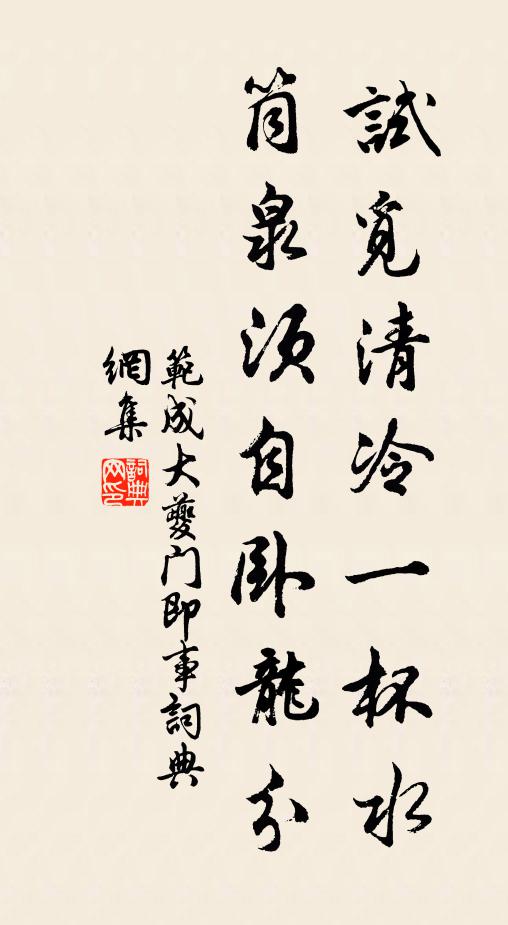 試覓清冷一杯水
筒泉須自卧龍分
範成大夔门即事詞典
網集
詞典網印